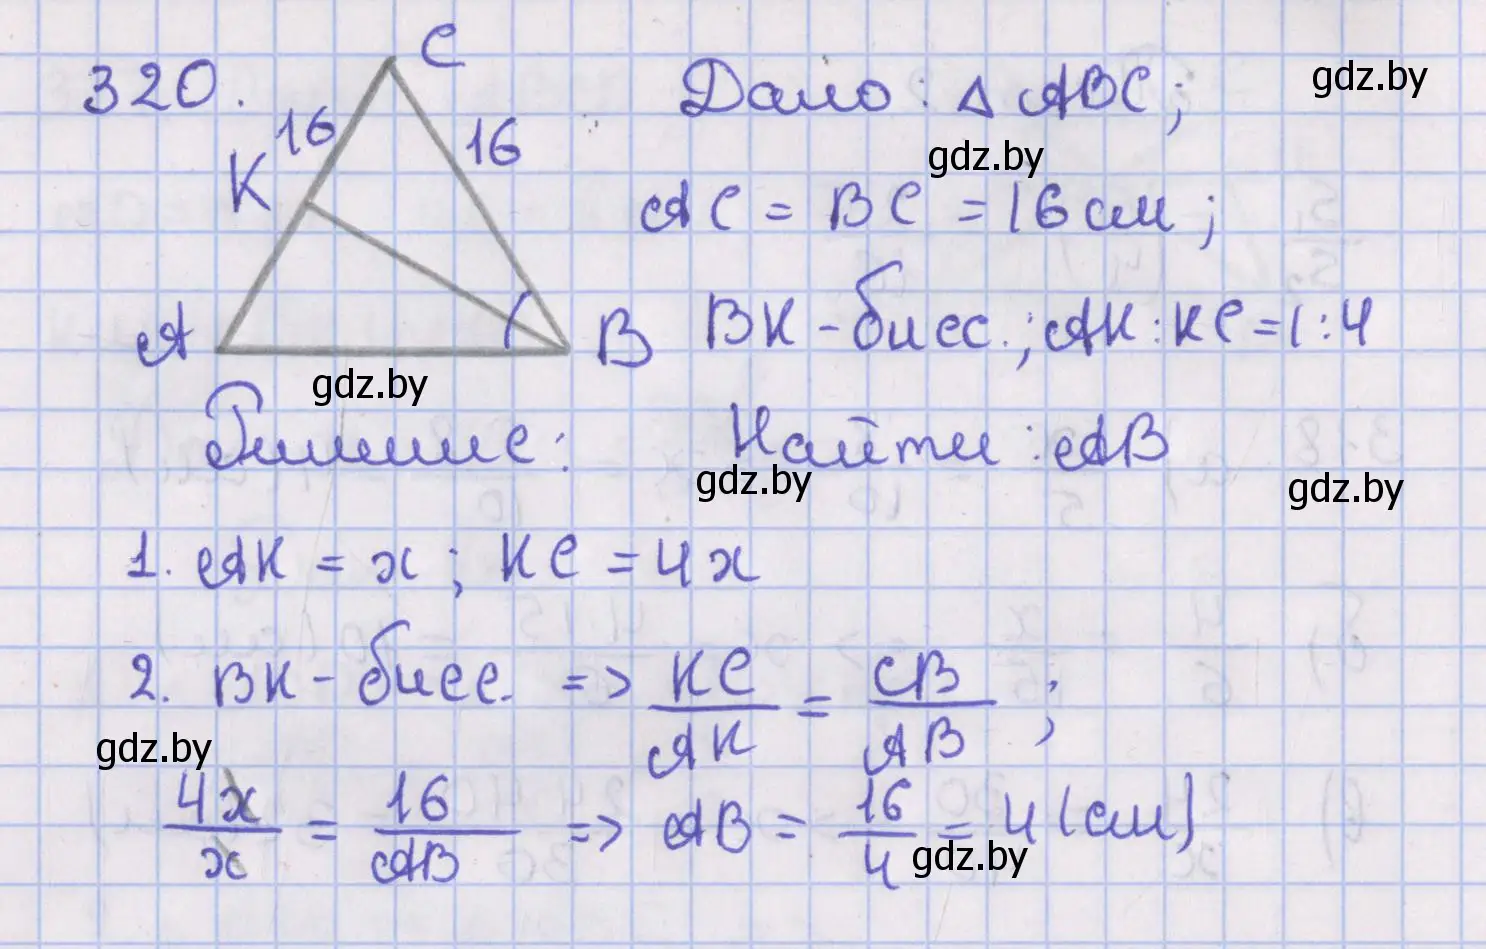 320.
C
16
16
K
A
B
Дано: △ ABC;
AC = BC = 16 см;
BK - бисс.; AK : KC = 1 : 4
Решение:
Найти: AB
1. AK = x; KC = 4x
2. BK - бисс. => KC/AK = CB/AB;
4x/x = 16/AB => AB = 16/4 = 4 (см)
gdz.by
gdz.by
gdz.by
gdz.by
gdz.by
gdz.by
gdz.by